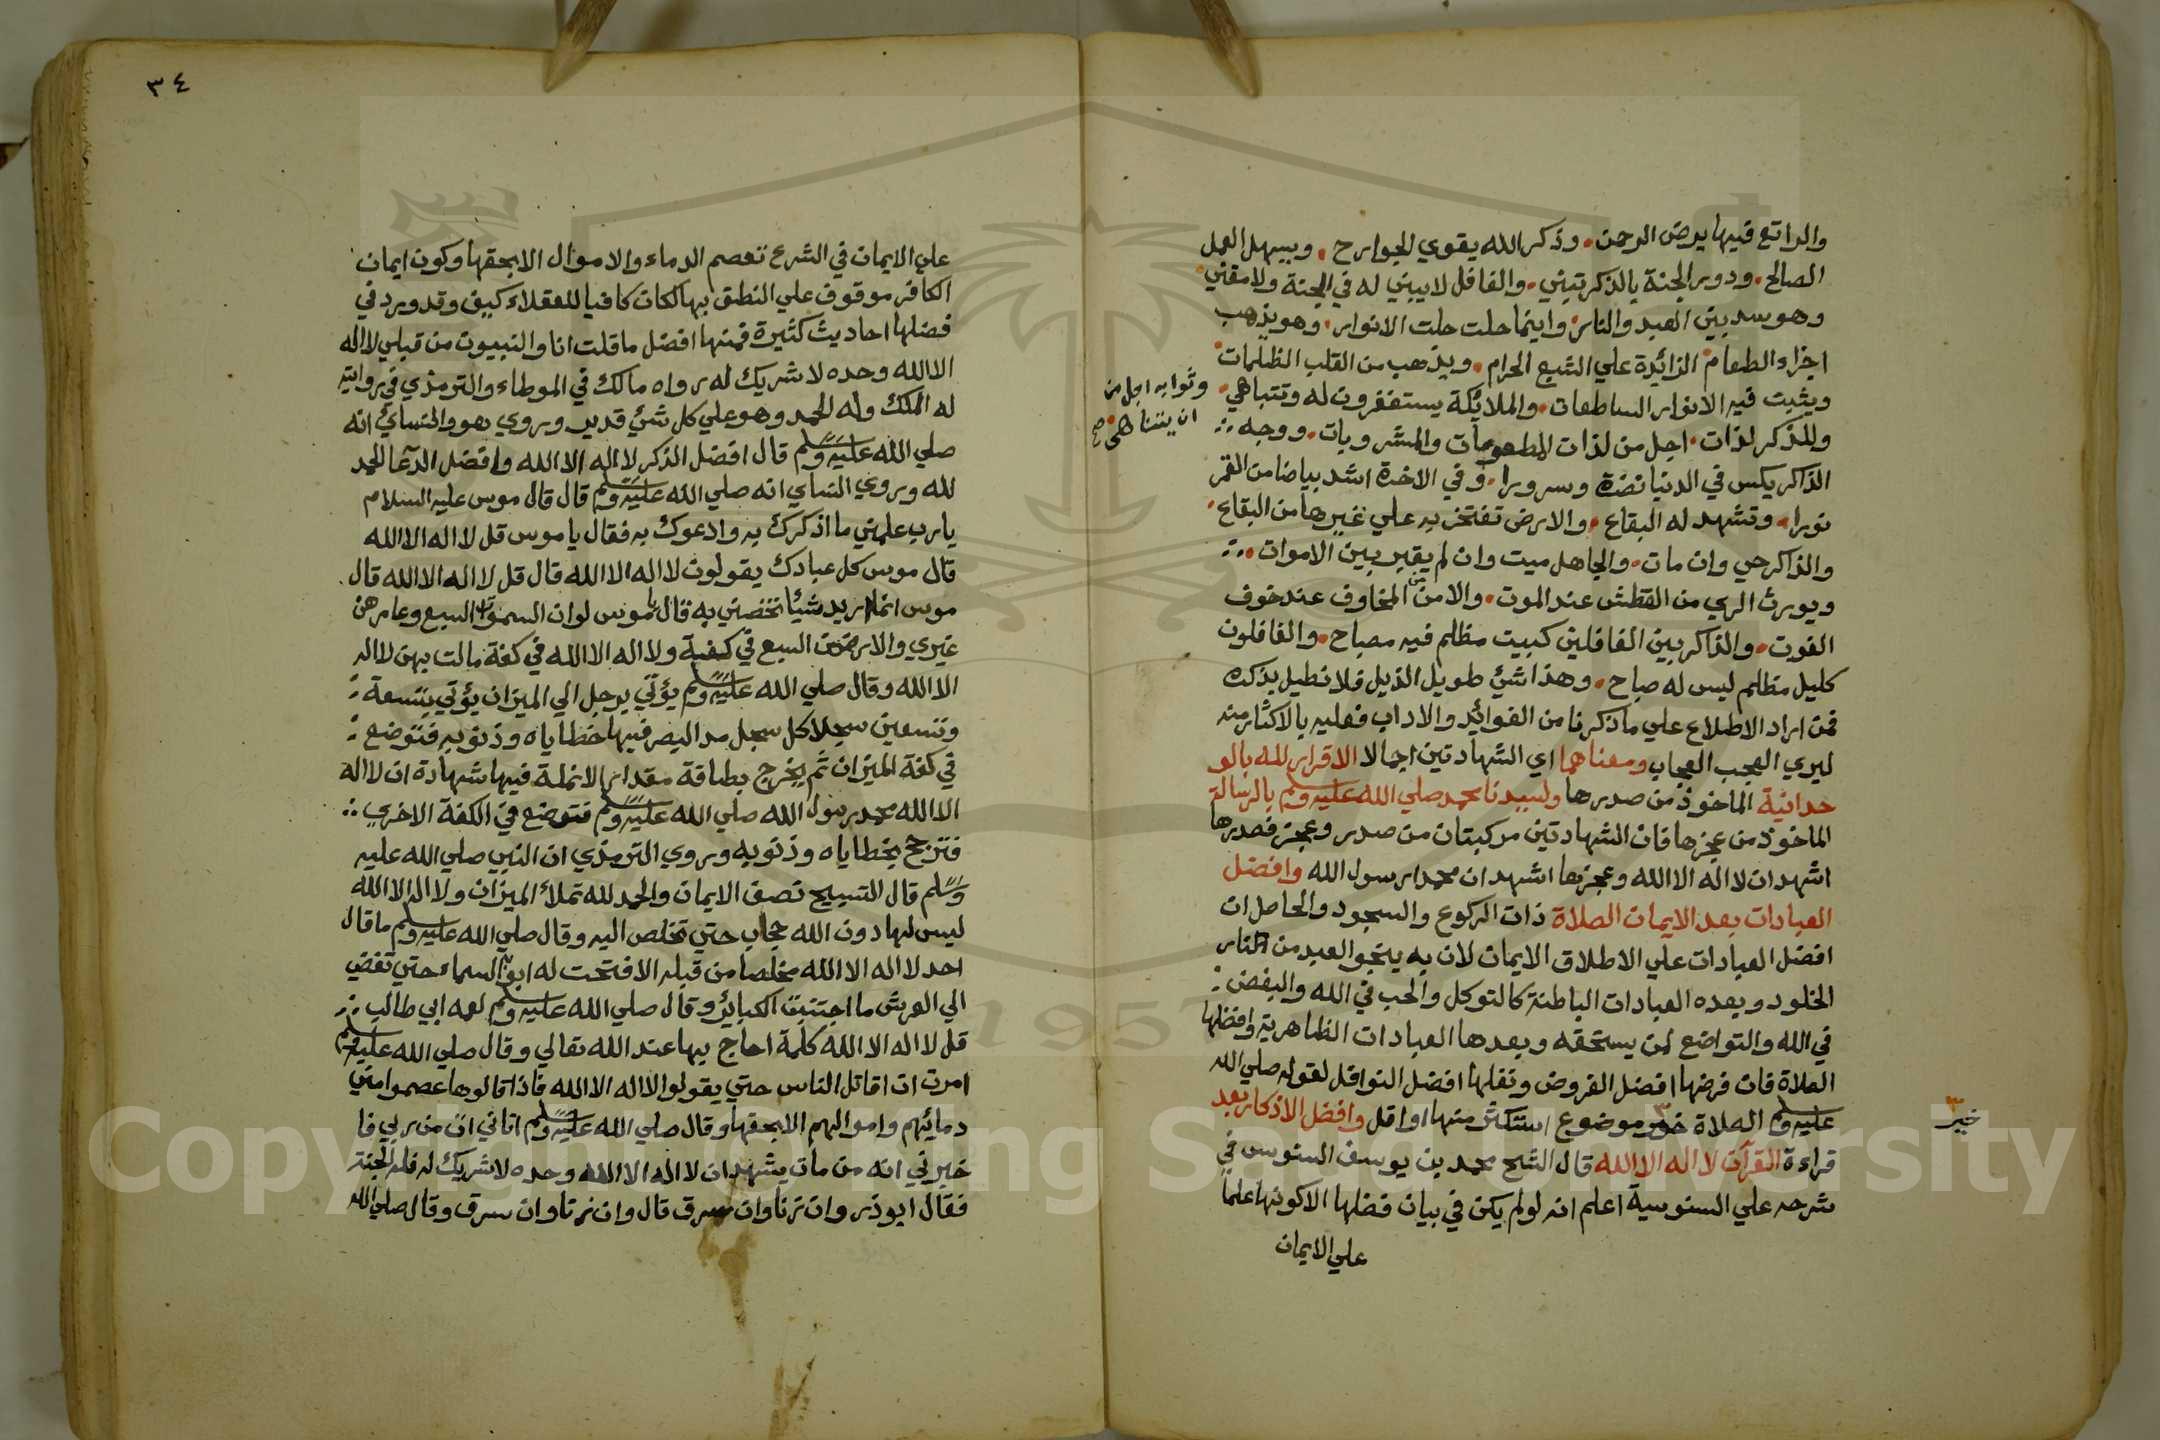 والراتع فيها يرض الرحمن. وذكر الله يقوي الجوارح. ويسهل العمل
الصالح. ودور الجنة بالذكر تبني. والغافل لا يبني له في الجنة ولا مقني
وهو سد بين العبد والنار. واينما حلت حلت الانوار. وهو يذهب
اجزاء الطعام الزائدة علي الشبع الحرام. ويذهب من القلب الظلمات
ويثبت فيه الانوار الساطعات. والملائكة يستغفرون له وتتباهي.
وثوابه اجل من
ان يتناهى صح
وللذكر لذات. اجل من لذات المطعومات والمشروبات. ووجه
الذاكر يكس في الدنيا نضرة وسرورا. وفي الاخرة اشد بياضا من القمر
نورا. وتشهد له البقاع. والارض تفتخر به علي غيرها من البقاع.
والذاكر حي وان مات. والجاهل ميت وان لم يقبر بين الاموات.
ويورث الري من العطش عند الموت. والامن من المخاوف عند خوف
الفوت. والذاكر بين الغافلين كبيت مظلم فيه مصباح. والغافلون
كليل مظلم ليس له صباح. وهذا شئ طويل الذيل فلا نطيل بذكره
فمن اراد الاطلاع علي ما ذكرنا من الفوائد والاداب فعليه بالاكثار منه
ليري العجب العجاب ومعناهما اي الشهادتين اجمالا الاقرار لله بالو
حدانية الماخوذ من صدرها ولسيدنا محمد صلي الله عليه وسلم بالرسالة
الماخوذ من عجزها فان الشهادتين مركبتان من صدر وعجز فصدرها
اشهد ان لا اله الا الله وعجزها اشهد ان محمدا رسول الله وافضل
العبادات بعد الايمان الصلاة ذات الركوع والسجود والحاصل ان
افضل العبادات علي الاطلاق الايمان لان به ينجو العبد من النار
الخلود وبعده العبادات الباطنة كالتوكل والحب في الله والبغض
في الله والتواضع لمن يستحقه وبعدها العبادات الظاهرية وافضلها
الصلاة فان فرضها افضل الفروض ونفلها افضل النوافل لقوله صلي الله
عليه وسلم الصلاة خير موضوع استكثر منها او اقل وافضل الاذكار بعد
خير
قراءة القرآن لا اله الا الله قال الشيخ محمد بن يوسف السنوسي في
شرحه علي السنوسية اعلم انه لو لم يكن في بيان فضلها الا كونها علما
علي الايمان
٣٤
علي الايمان في الشرع تعصم الدماء والاموال الا بحقها وكون ايمان
الكافر موقوف علي النطق بها لكان كافيا للعقلاء كيف وقد ورد في
فضلها احاديث كثيرة فمنها افضل ما قلت انا والنبيون من قبلي لا اله
الا الله وحده لا شريك له رواه مالك في الموطاء والترمذي في روايته
له الملك وله الحمد وهو علي كل شئ قدير وروي هو والنسائي انه
صلي الله عليه وسلم قال افضل الذكر لا اله الا الله وافضل الدعا الحمد
لله وروي النساي انه صلي الله عليه وسلم قال قال موسي عليه السلام
يا رب علمني ما اذكرك به وادعوك به فقال يا موسي قل لا اله الا الله
قال موسي كل عبادك يقولون لا اله الا الله قال قل لا اله الا الله قال
موسي انما اريد شيئا تخصني به قال يا موسي لو ان السموات السبع وعامرهن
غيري والارضين السبع في كفة ولا اله الا الله في كفة مالت بهن لا اله
الا الله وقال صلي الله عليه وسلم يؤتي برجل الي الميزان يؤتي بتسعة
وتسعين سجلا كل سجل مد البصر فيها خطاياه وذنوبه فتوضع
في كفة الميزان ثم يخرج بطاقة مقدار الانملة فيها شهادة ان لا اله
الا الله محمد رسول الله صلي الله عليه وسلم فتوضع في الكفة الاخري
فترجح بخطاياه وذنوبه وروي الترمذي ان النبي صلي الله عليه
وسلم قال التسبيح نصف الايمان والحمد لله تملأ الميزان ولا اله الا الله
ليس لها دون الله حجاب حتي تخلص اليه وقال صلي الله عليه وسلم ما قال
احد لا اله الا الله مخلصا من قبله الا فتحت له ابواب السماء حتي تفضي
الي العرش ما اجتنبت الكبائر وقال صلي الله عليه وسلم لعمه ابي طالب
قل لا اله الا الله كلمة احاج بها عند الله تعالي وقال صلي الله عليه وسلم
امرت ان اقاتل الناس حتي يقولوا لا اله الا الله فاذا قالوها عصموا مني
دمائهم واموالهم الا بحقها وقال صلي الله عليه وسلم اتاني ات من ربي فا
خبرني انه من مات يشهد ان لا اله الا الله وحده لا شريك له فله الجنة
فقال ابو ذر وان زنا وان سرق قال وان زنا وان سرق وقال صلي الله
Copyright © King Saud University
1957